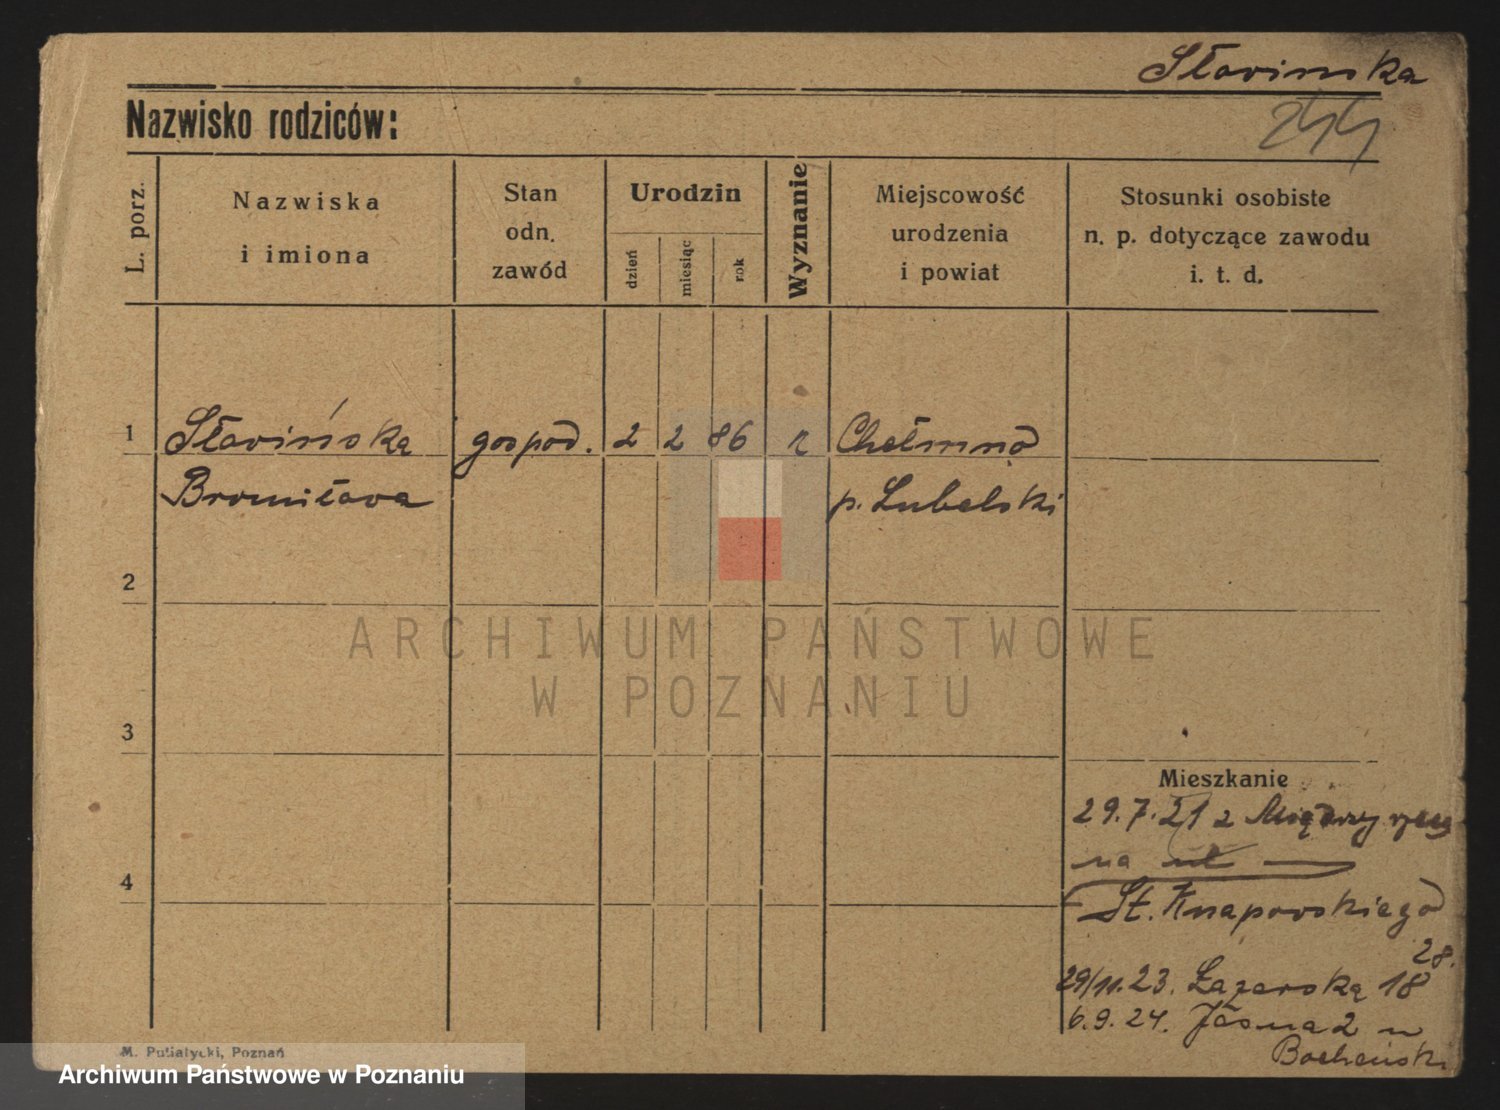 Słavinska
244
Nazwisko rodziców:
L. porz.
Nazwiska
i imiona
Stan
odn.
zawód
Urodzin
dzień
miesiąc
rok
Wyznanie
Miejscowość
urodzenia
i powiat
Stosunki osobiste
n. p. dotyczące zawodu
i. t. d.
1 Słavińska gospod. 2 2 86 r Chełmno
Bronisława p. Lubelski
2
ARCHIWUM PAŃSTWOWE
W POZNANIU
3
Mieszkanie
29.7.21 z
na ul
4
St. Knapovskiego
28.
29/11.23. Łazarska 18
6.9.24. Jasna 2 u
M. Putiatycki, Poznań
Archiwum Państwowe w Poznaniu